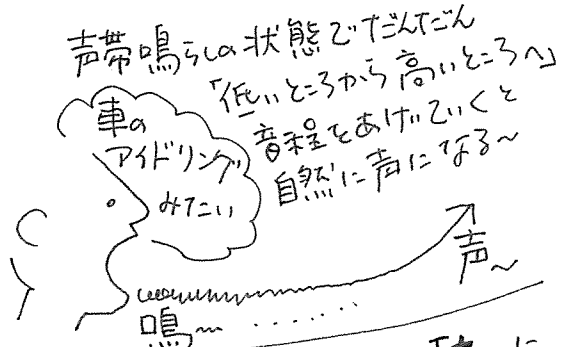 声帯鳴らしの状態でだんだん
「低いところから高いところへ」
音程をあげていくと
自然に声になる〜
車の
アイドリング
みたい
声〜
鳴〜